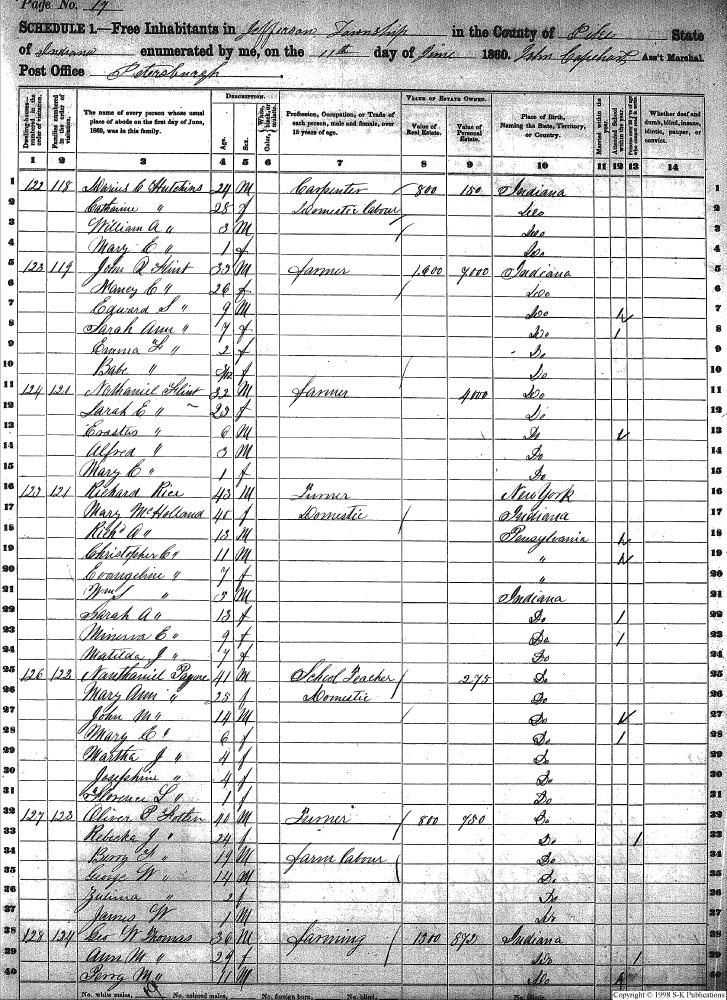 Page No. 17
SCHEDULE 1.—Free Inhabitants in Jefferson Township in the County of Pike State
of Indiana enumerated by me, on the 11th day of June 1860. John Capehart, Ass't Marshal.
Post Office Petersburgh
Dwelling-houses—numbered in the order of visitation.
Families numbered in the order of visitation.
The name of every person whose usual place of abode on the first day of June, 1860, was in this family.
DESCRIPTION.
Age.
Sex.
Color, White, black, or mulatto.
Profession, Occupation, or Trade of each person, male and female, over 15 years of age.
VALUE OF ESTATE OWNED.
Value of Real Estate.
Value of Personal Estate.
Place of Birth, Naming the State, Territory, or Country.
Married within the year.
Attended School within the year.
Whether deaf and dumb, blind, insane, idiotic, pauper, or convict.
1 2 3 4 5 6 7 8 9 10 11 12 13 14
1 122 118 Marius C Hutchins 24 M Carpenter 800 150 Indiana 1
2 Catharine " 28 f Domestic labour Do 2
3 William A " 3 M Do 3
4 Mary E " 1 f Do 4
5 123 119 John R Flint 33 M farmer 7000 Indiana 5
6 Nancy C " 26 f Do 6
7 Edward S " 9 M Do 7
8 Sarah Ann " 7 f Do 1 8
9 Emma F " 2 f Do 9
10 Babe " f Do 10
11 124 120 Nathaniel Flint 32 M farmer 4000 Do 11
12 Sarah E " 23 f Do 12
13 Erastus " 6 M Do 13
14 Alfred " 3 M Do 14
15 Mary C " 1 f Do 15
16 121 Richard Rice 43 M New York 16
17 Mary McHolland 41 f Domestic Indiana 17
18 Richd A " 13 M Pensylvania 18
19 Christopher C " 11 M " 19
20 Evangeline " 7 f " 20
21 Wm S " 3 M Indiana 21
22 Sarah A " 13 f Do 1 22
23 Minerva E " 9 f Do 1 23
24 Matilda J " 7 f Do 24
25 126 122 Nanthaniel Payne 41 M School Teacher 275 Do 25
26 Mary Ann " 28 f Domestic Do 26
27 John M " 14 M Do 27
28 Mary E " 6 f Do 1 28
29 Martha J " 4 f Do 29
30 Josephine " 4 f Do 30
31 Florence L " 1 f Do 31
32 127 123 Oliver P 40 M 800 750 Do 32
33 Rebecka J " 24 f Do 1 33
34 Berry " 19 M farm labour Do 34
35 George W " 14 M Do 35
36 Zulima " 2 f Do 36
37 James W 1 M Do 37
38 128 124 Geo W Thomas 36 M farming 1300 872 Indiana 38
39 Ann M " 29 f Do 1 39
40 Perry M " 11 M Do 40
No. white males, No. colored males, No. foreign born, No. blind,
Copyright © 1998 S-K Publications